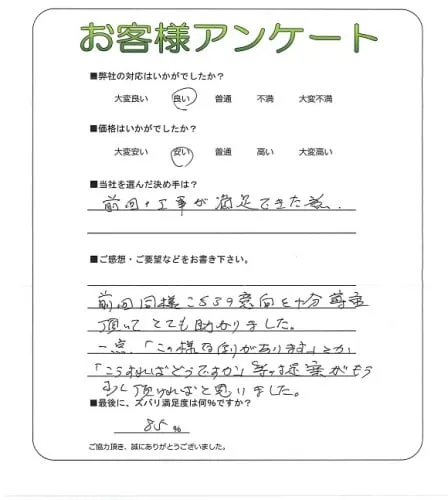 お客様アンケート
■弊社の対応はいかがでしたか？
大変良い 良い 普通 不満 大変不満
■価格はいかがでしたか？
大変安い 安い 普通 高い 大変高い
■当社を選んだ決め手は？
前回の工事が満足できた為。
■ご感想・ご要望などをお書き下さい。
前回同様こちらの意向を十分尊重
頂いてとても助かりました。
一点、「この様な例があります」とか
「こうすればどうですか」等の提案がもう
少し頂ければと思いました。
■最後に、ズバリ満足度は何%ですか？
85 %
ご協力頂き、誠にありがとうございました。